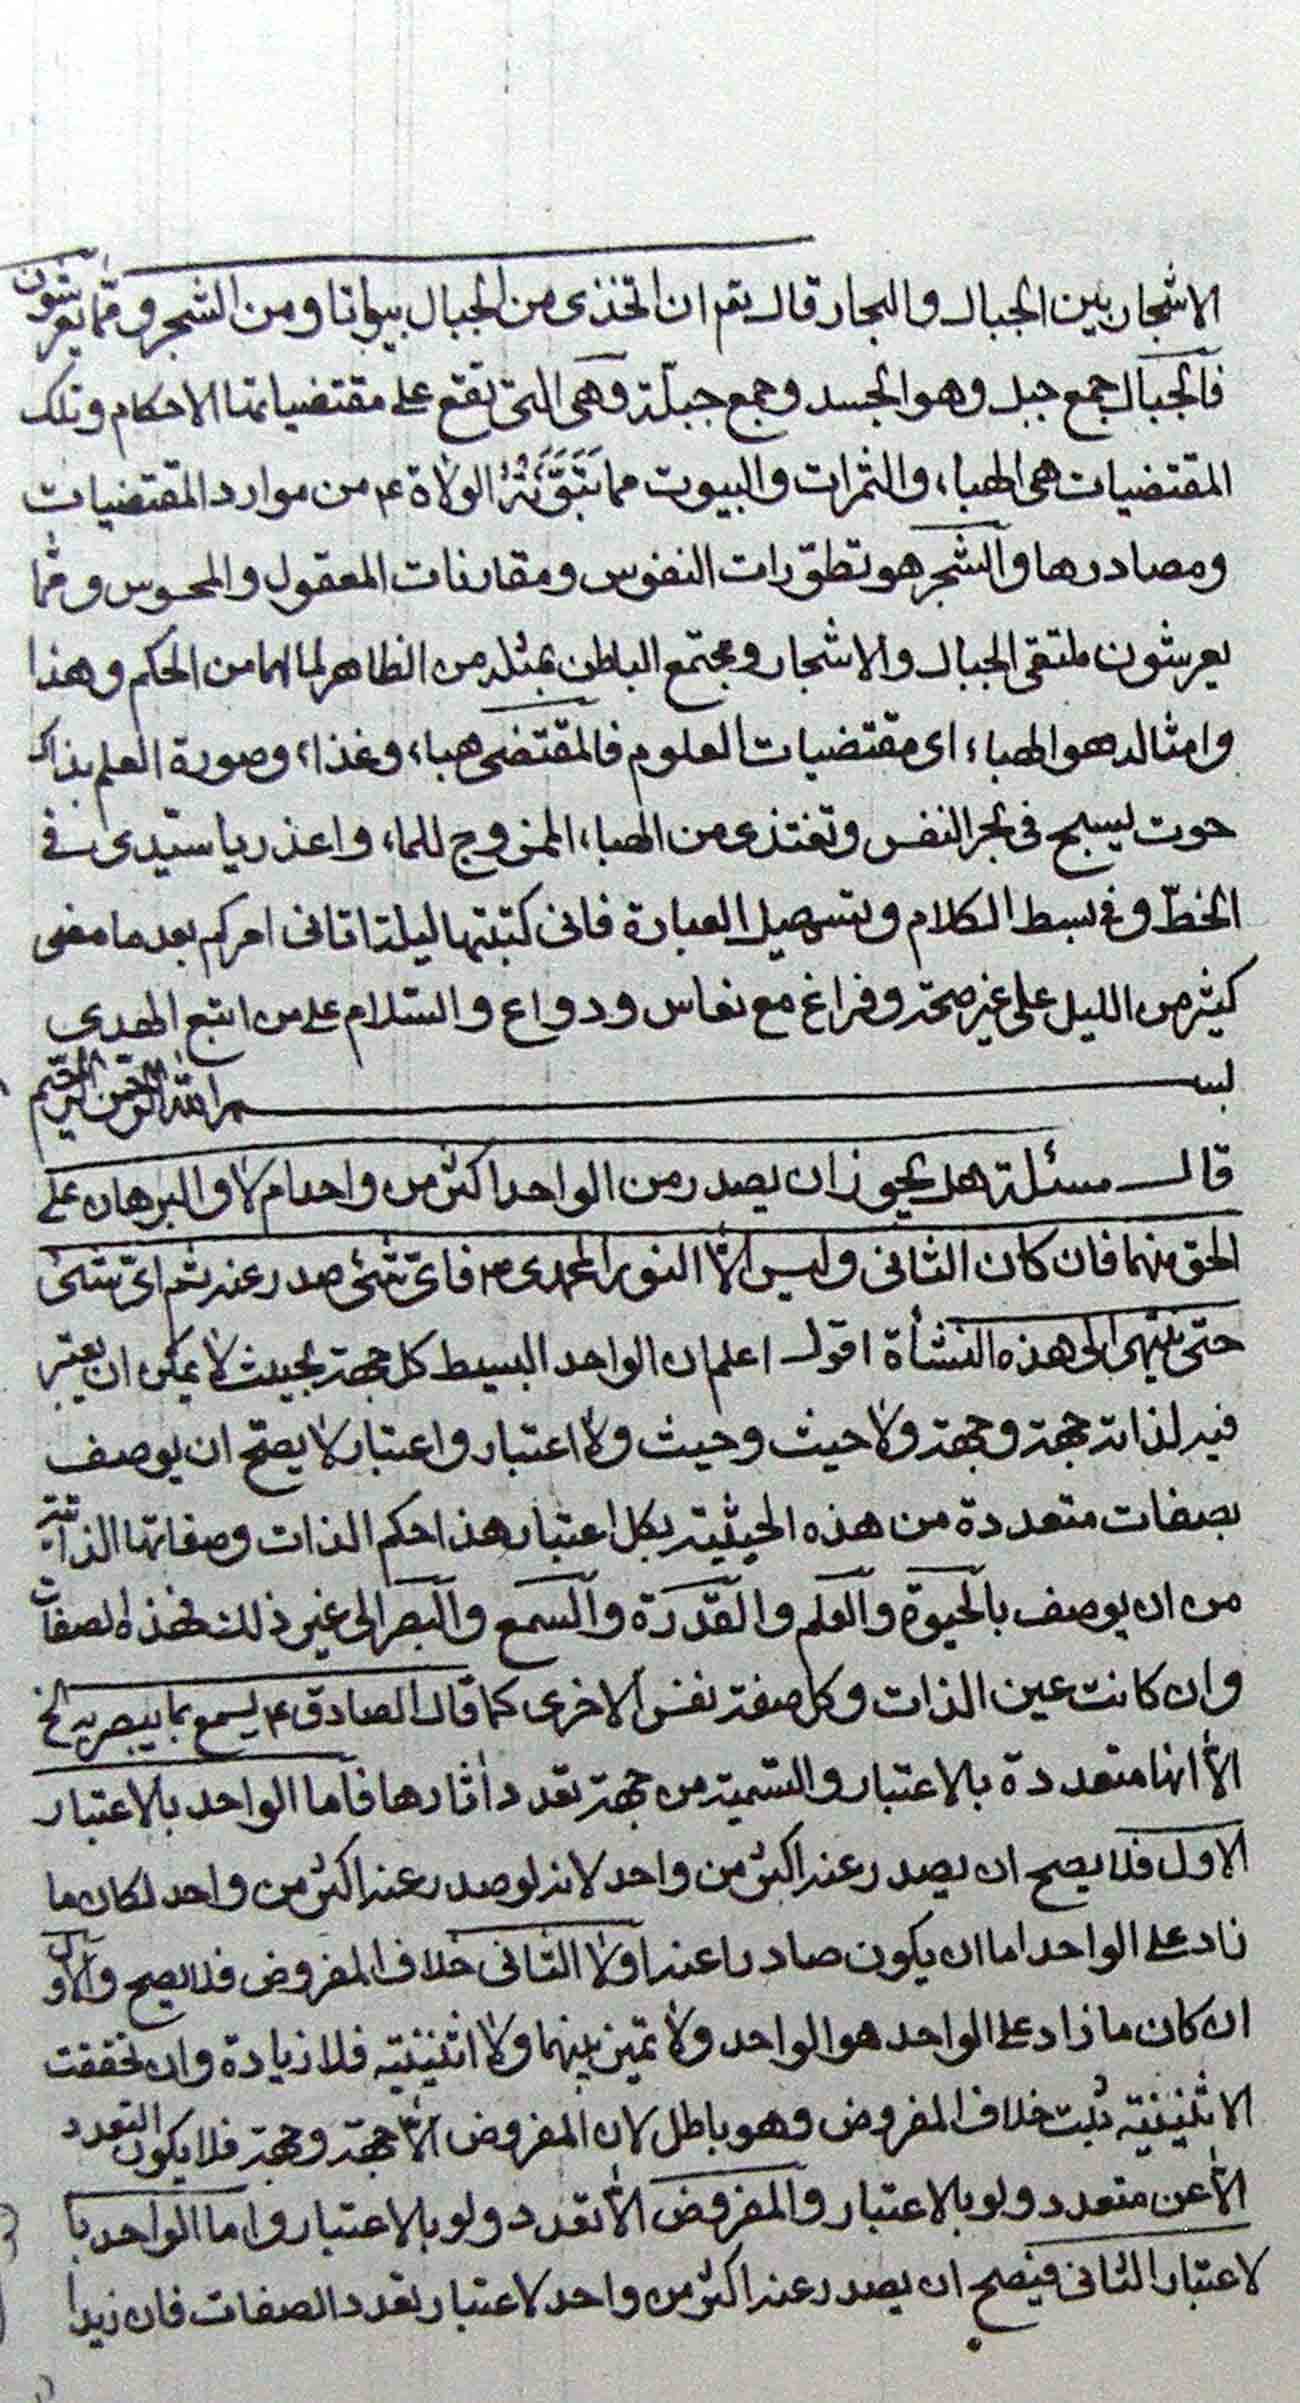 الاشجار بين الجبال والبحار قال تع ان اتخذى من الجبال بيوتا ومن الشجر ومما يعرشون
فالجبال جمع جبل وهو الجسد وجمع جبلّة وهى التى تقع على مقتضياتها الاحكام وتلك
المقتضيات هى الهباء والثمرات والبيوت مما الولاة ع من موارد المقتضيات
ومصادرها والشجر هو تطوّرات النفوس ومقارنات المعقول والمحسوس ومما
يعرشون ملتقى الجبال والاشجار ومجتمع الباطن بمثله من الظاهر لما لهما من الحكم وهذا
وامثاله هو الهباء اى مقتضيات العلوم فالمقتضى هباء وغذاء وصورة العلم بذاك
حوت يسبح فى بحر النفس وتغتذى من الهباء الممزوج للماء واعذر يا سيّدى فى
الخطّ وفى بسط الكلام وتسهيل العبارة فانى كتبتها ليلة اتانى امركم بعد ما مضى
كثير من الليل على غير صحة وفراغ مع نعاس ودواع والسّلام على من اتبع الهدى
بسم الله الرّحمن الرّحيم
قال مسئلة هل يجوز ان يصدر من الواحد اكثر من واحد ام لا والبرهان على
الحق منهما فان كان الثانى وليس الّا النور المحمدى ص فاى شئ صدر عنه ثم اىّ شئ
حتى ينتهى الى هذه النشأة اقول اعلم ان الواحد البسيط كل جهة بحيث لا يمكن ان يعتبر
فيه لذاته جهة وجهة ولا حيث وحيث ولا اعتبار واعتبار لا يصح ان يوصف
بصفات متعددة من هذه الحيثية بكل اعتبار هذا حكم الذات وصفاتها الذاتية
من ان يوصف بالحيوة والعلم والقدرة والسمع والبصر الى غير ذلك فهذه الصفات
وان كانت عين الذات وكل صفة نفس الاخرى كما قال الصادق ع يسمع بما يبصر به الخ
الّا انها متعددة بالاعتبار والتسمية من جهة تعدد اثارها فاما الواحد بالاعتبار
الاول فلا يصح ان يصدر عنه اكثر من واحد لانه لو صدر عنه اكثر من واحد لكان ما
زاد على الواحد اما ان يكون صادرا عنه اولا الثانى خلاف المفروض فلا يصح والاول
ان كان ما زاد على الواحد هو الواحد ولا تميز بينهما ولا اثنينية فلا زيادة وان تحققت
الاثنينية ثبت خلاف المفروض وهو باطل لان المفروض الّا جهة وجهة فلا يكون التعدد
الّا عن متعدد ولو بالاعتبار والمفروض الّا تعدد ولو بالاعتبار واما الواحد با
لاعتبار الثانى فيصح ان يصدر عنه اكثر من واحد لاعتبار تعدد الصفات فان زيدا